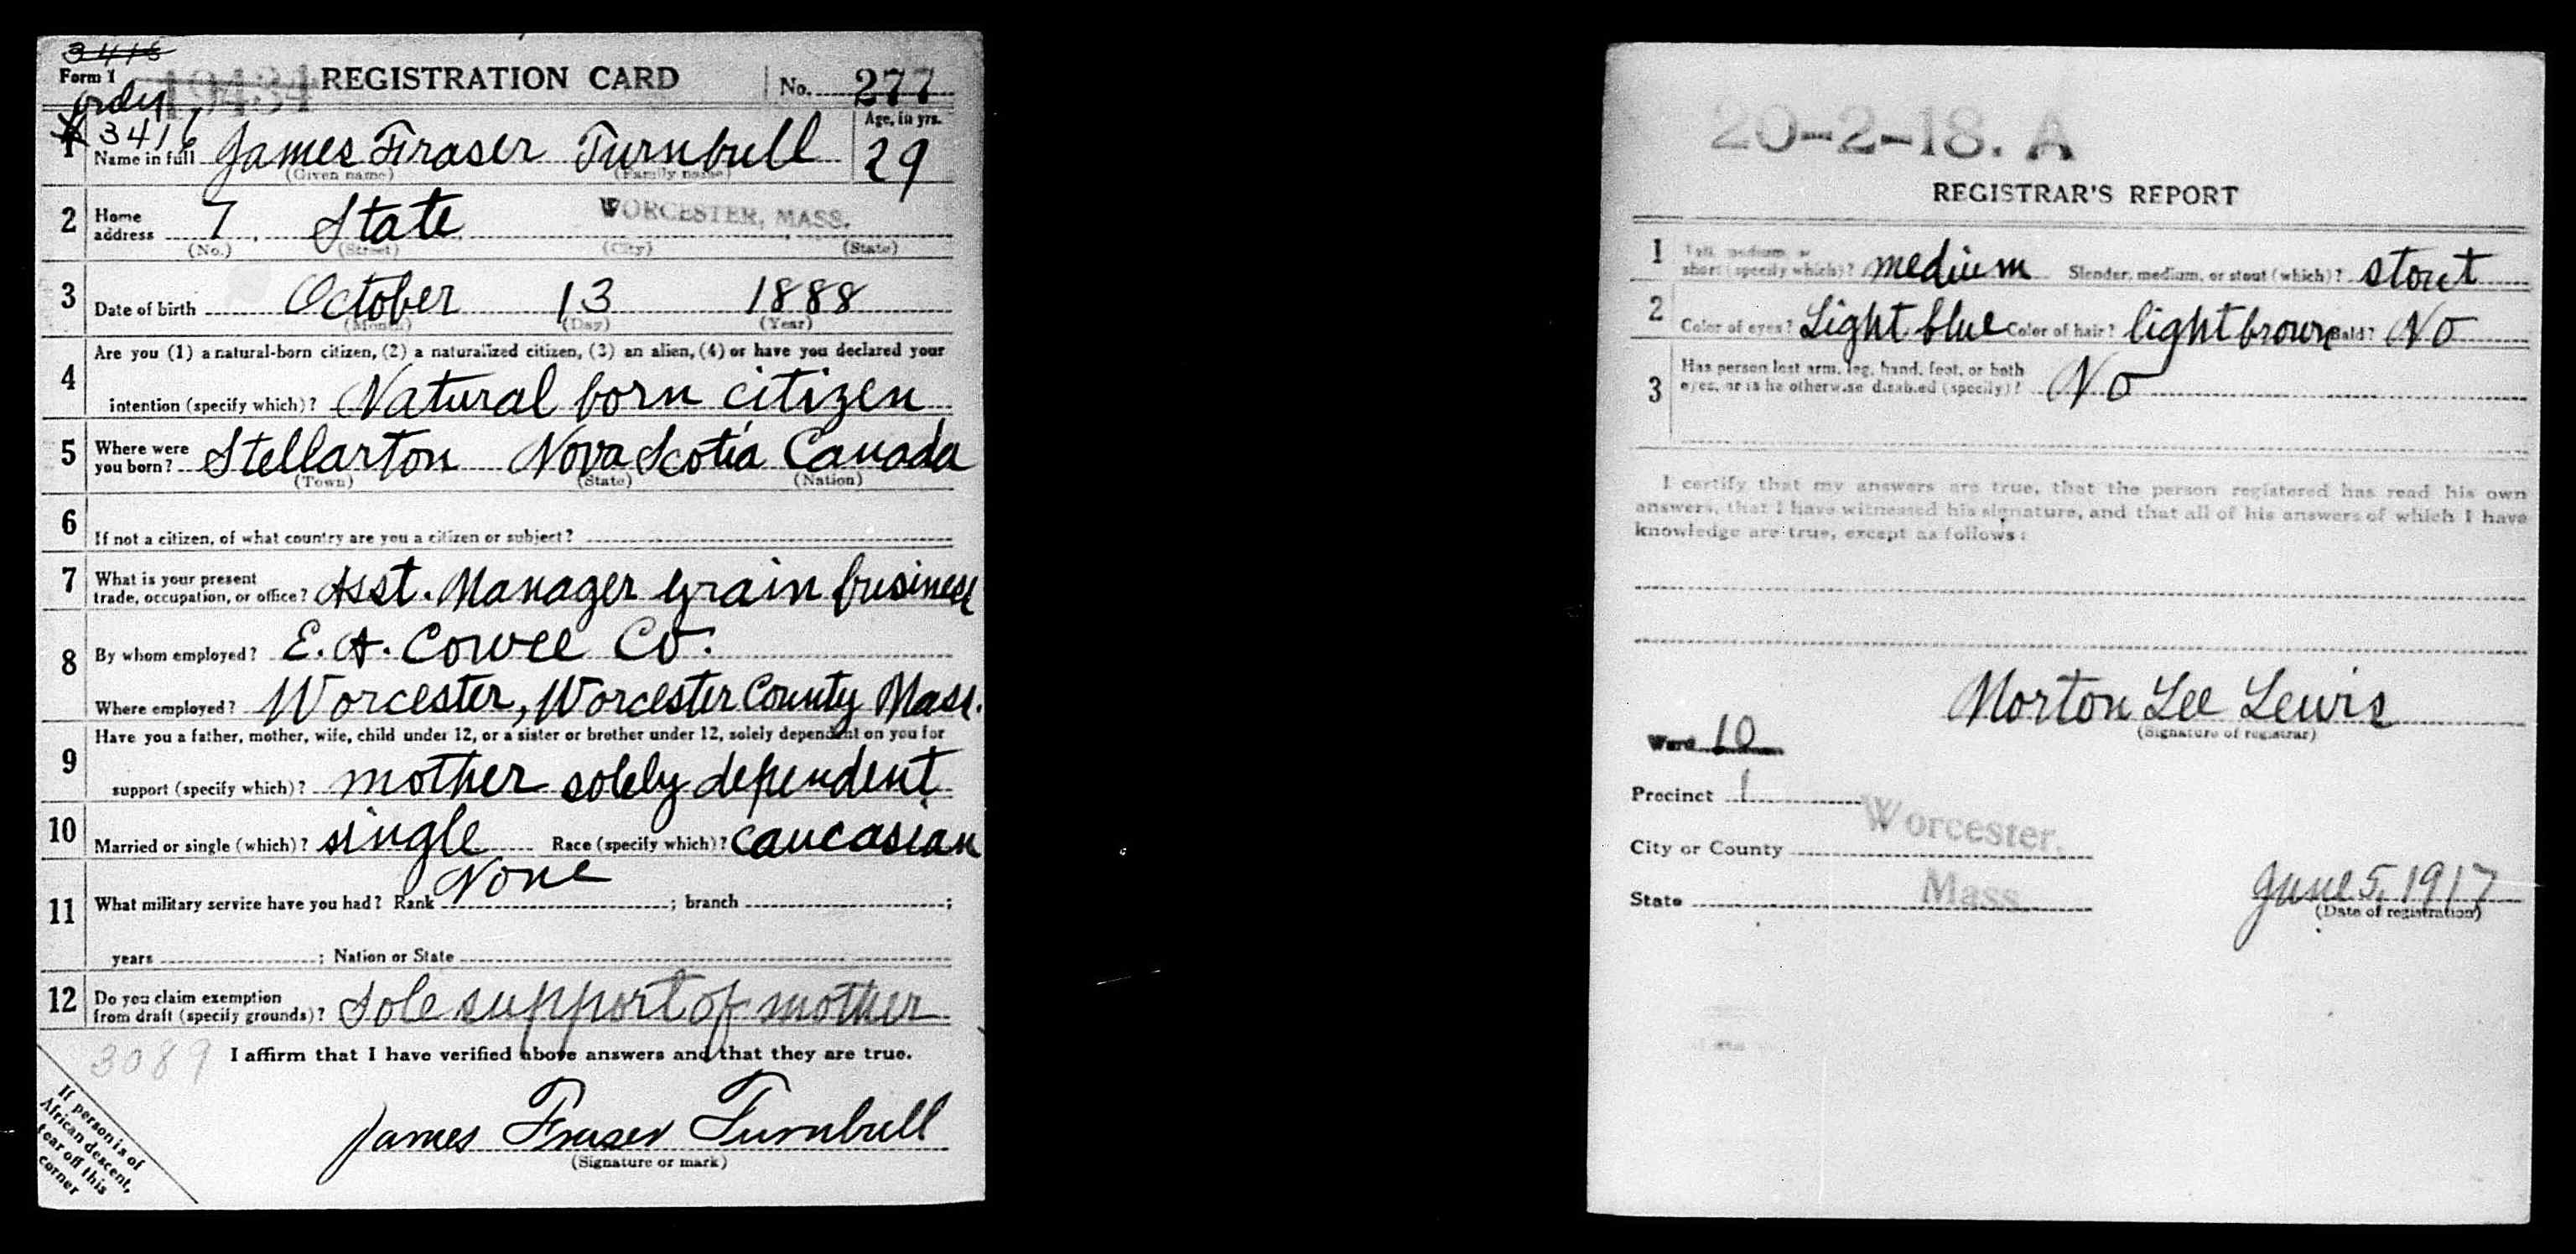 3415
Form 1 19434 REGISTRATION CARD No. 277
order
3416
1 Name in full James Fraser Turnbull Age, in yrs. 29
(Given name) (Family name)
2 Home address 7 State WORCESTER, MASS.
(No.) (Street) (City) (State)
3 Date of birth October 13 1888
(Month) (Day) (Year)
Are you (1) a natural-born citizen, (2) a naturalized citizen, (3) an alien, (4) or have you declared your
4 intention (specify which)? Natural born citizen
5 Where were you born? Stellarton Nova Scotia Canada
(Town) (State) (Nation)
6 If not a citizen, of what country are you a citizen or subject?
7 What is your present trade, occupation, or office? Asst. Manager grain business
8 By whom employed? E. A. Cowee Co.
Where employed? Worcester, Worcester County Mass.
Have you a father, mother, wife, child under 12, or a sister or brother under 12, solely dependent on you for
9 support (specify which)? mother solely dependent
10 Married or single (which)? single Race (specify which)? caucasian
11 What military service have you had? Rank None ; branch ;
years ; Nation or State
12 Do you claim exemption from draft (specify grounds)? Sole support of mother
3089 I affirm that I have verified above answers and that they are true.
James Fraser Turnbull
(Signature or mark)
If person is of
African descent,
tear off this
corner
20-2-18. A
REGISTRAR'S REPORT
1 Tall, medium or short (specify which)? medium Slender, medium, or stout (which)? stout
2 Color of eyes? Light blue Color of hair? light brown Bald? No
3 Has person lost arm, leg, hand, foot, or both eyes, or is he otherwise disabled (specify)? No
I certify that my answers are true, that the person registered has read his own
answers, that I have witnessed his signature, and that all of his answers of which I have
knowledge are true, except as follows:
Morton Lee Lewis
(Signature of registrar)
Ward 10
Precinct 1
City or County Worcester.
State Mass.
June 5, 1917
(Date of registration)